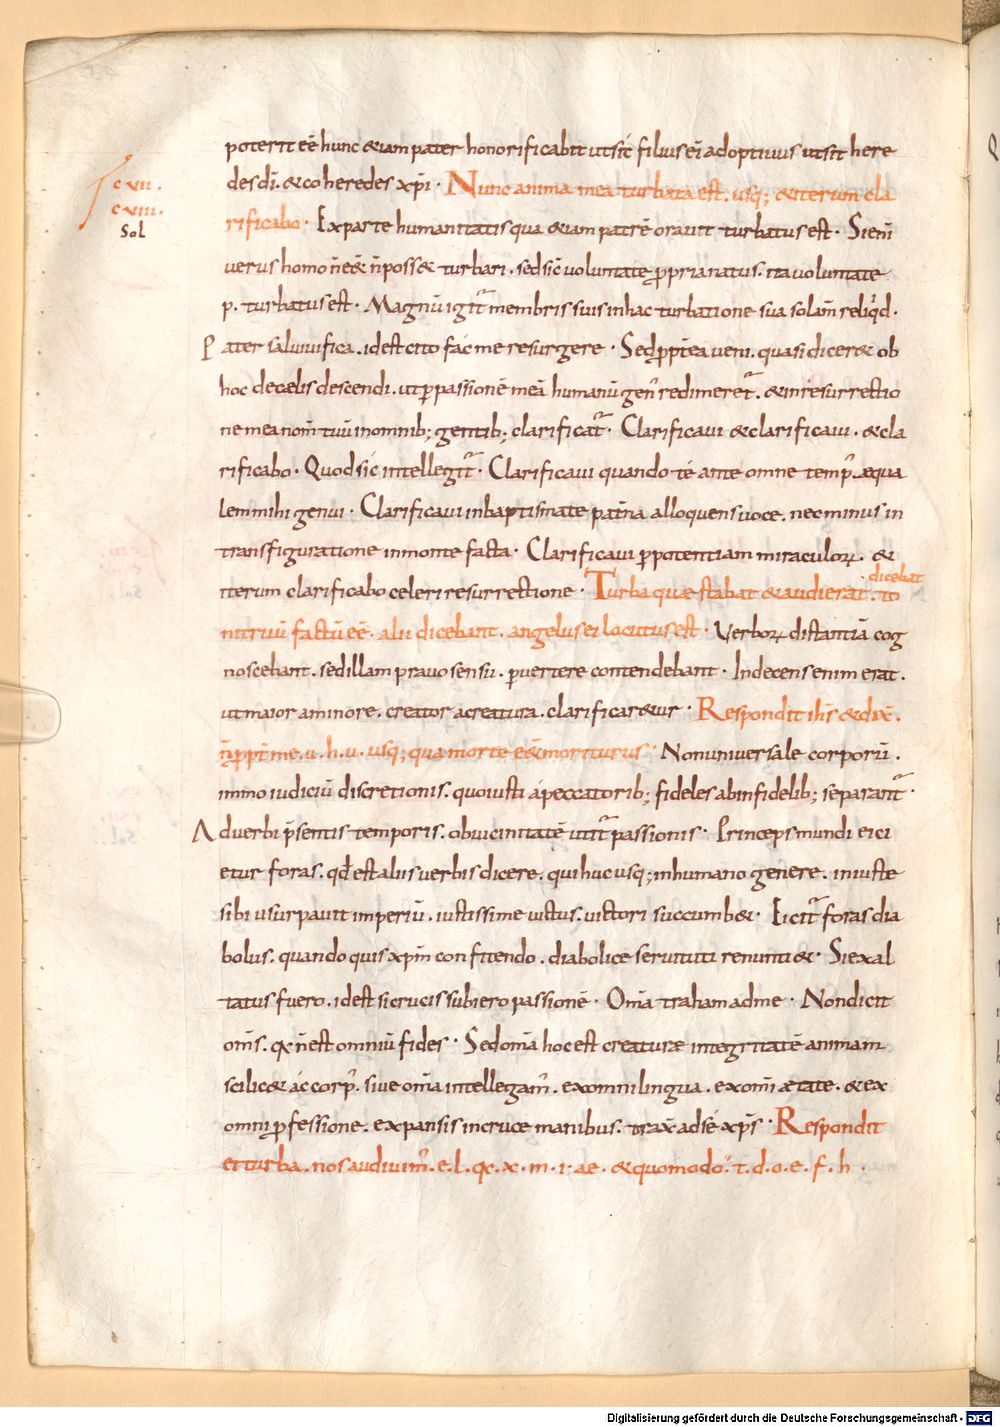 c vii.
c viii.
Sol
poterit eē hunc &iam pater honorificabit ut sic̄ filius ei adoptiuus ut sit here
des dī. & coheredes xp̄i · Nunc anima mea turbata est. usq; & iterum cla
rificabo · Ex parte humanitatis qua &iam patrē orauit turbatus est · Si eni̅
uerus homo n̄ e& n̄ poss& turbari. sed sic̄ uoluntate ꝓpria natus. ita uoluntate
p. turbatus est · Magnū igit̄ membris suis in hac turbatione sua solam̄ reliq̇d.
Pater saluifica. id est cito fác me resurgere · Sed ꝓpt̄ea ueni. quasi dicer& ob
hoc de cęlis descendi. ut ꝑ passionē meā humanū gen̄ redimeret̄. & in resurrectio
ne mea nom̄ tuū in omnib; gentib; clarificat̄ · Clarificaui & clarificaui. & cla
rificabo · Quod sic̄ intellegit̄ · Clarificaui quando té ante omne temp̄. æqua
lem mihi genui · Clarificaui in baptismate patn̄a alloquens uoce. nec minus in
transfiguratione in monte facta · Clarificaui ꝑ potentiam miraculoꝝ. &
iterum clarificabo celeri resurrectione · Turba quæ stabat & audierat. dicebat to
nitruū factū eē. alii dicebant. angelus ei locutus est · Uerboꝝ distantiā cog
noscebant. sed illam prauo sensu. ꝑuertere contendebant · Indecens enim erat.
ut maior a minore. creator a creatura. clarificar&ur · Respondit ih̄s & dix̄.
n̄ ꝓpt̄ me. u. h. u. usq; qua morte e& moriturus · Non uniuersale corporū.
immo iudiciū discretionis. quo iusti á peccatorib; fideles ab infidelib; separant̄ ·
Aduerbi p̄sentis temporis. ob uicinitatē utit̄ passionis · Princeps mundi eici
etur foras. qd̄ est aliis uerbis dicere. qui huc usq; in humano genere. iniuste
sibi usurpauit imperiū. iustissime uictus. uictori succumb& · Eicit̄ foras dia
bolus. quando quis xp̄m confitendo. diabolice seruituti renunti& · Si exal
tatus fuero. id est si crucis subiero passionē · Om̄a traham ad me · Non dicit
om̄s. qꝫ n̄ est omniū fides · Sed om̄a hoc est creaturæ integritatē animam
scilic& ác corp̄. siue om̄a intellegam̄. ex omni lingua. ex om̄i ætate. & ex
omni ꝓfessione. expansis in cruce manibus. trax̄ ad sé xp̄s · Respondit
ei turba. nos audiuim̄. e. l. qꝫ. x. m. i. ae. & quomodo. t. d. o. e. f. h.
Digitalisierung gefördert durch die Deutsche Forschungsgemeinschaft · DFG